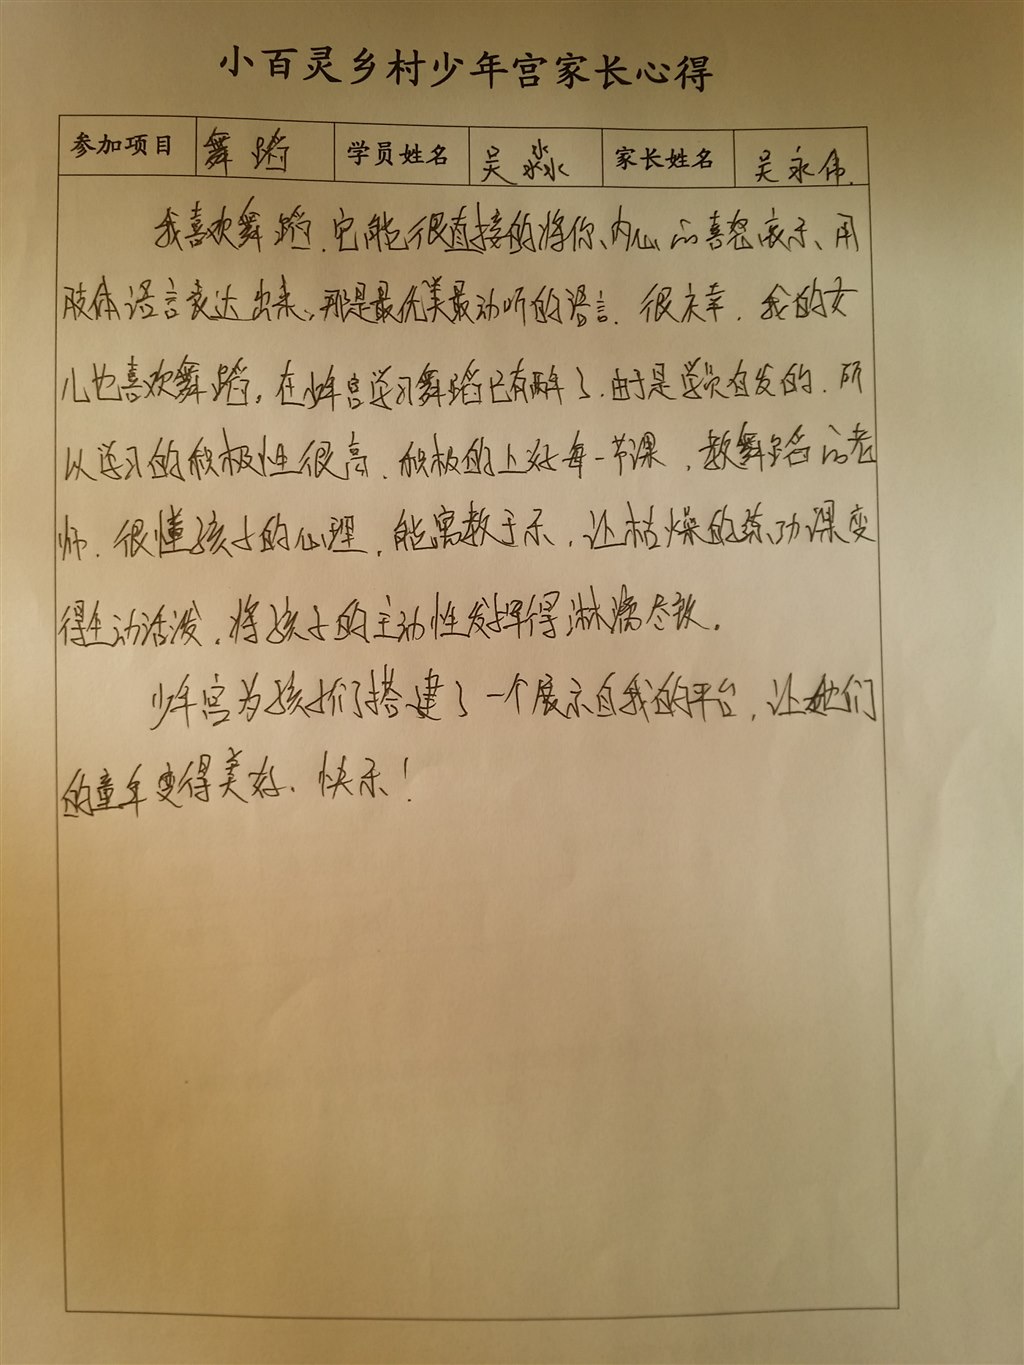 小百灵乡村少年宫家长心得
参加项目 舞蹈 学员姓名 吴淼 家长姓名 吴永伟.
我喜欢舞蹈.它能很直接的将你、内心的喜怒哀乐、用
肢体语言表达出来,那是最优美最动听的语言.很庆幸.我的女
儿也喜欢舞蹈。在少年宫学习舞蹈已有两年了.由于是学员自发的.所
以学习的积极性很高.积极的上好每一节课,教舞蹈的老
师.很懂孩子的心理,能寓教于乐,让枯燥的练功课变
得生动活泼,将孩子的主动性发挥得淋漓尽致。
少年宫为孩子们搭建了一个展示自我的平台,让她们
的童年变得美好、快乐!